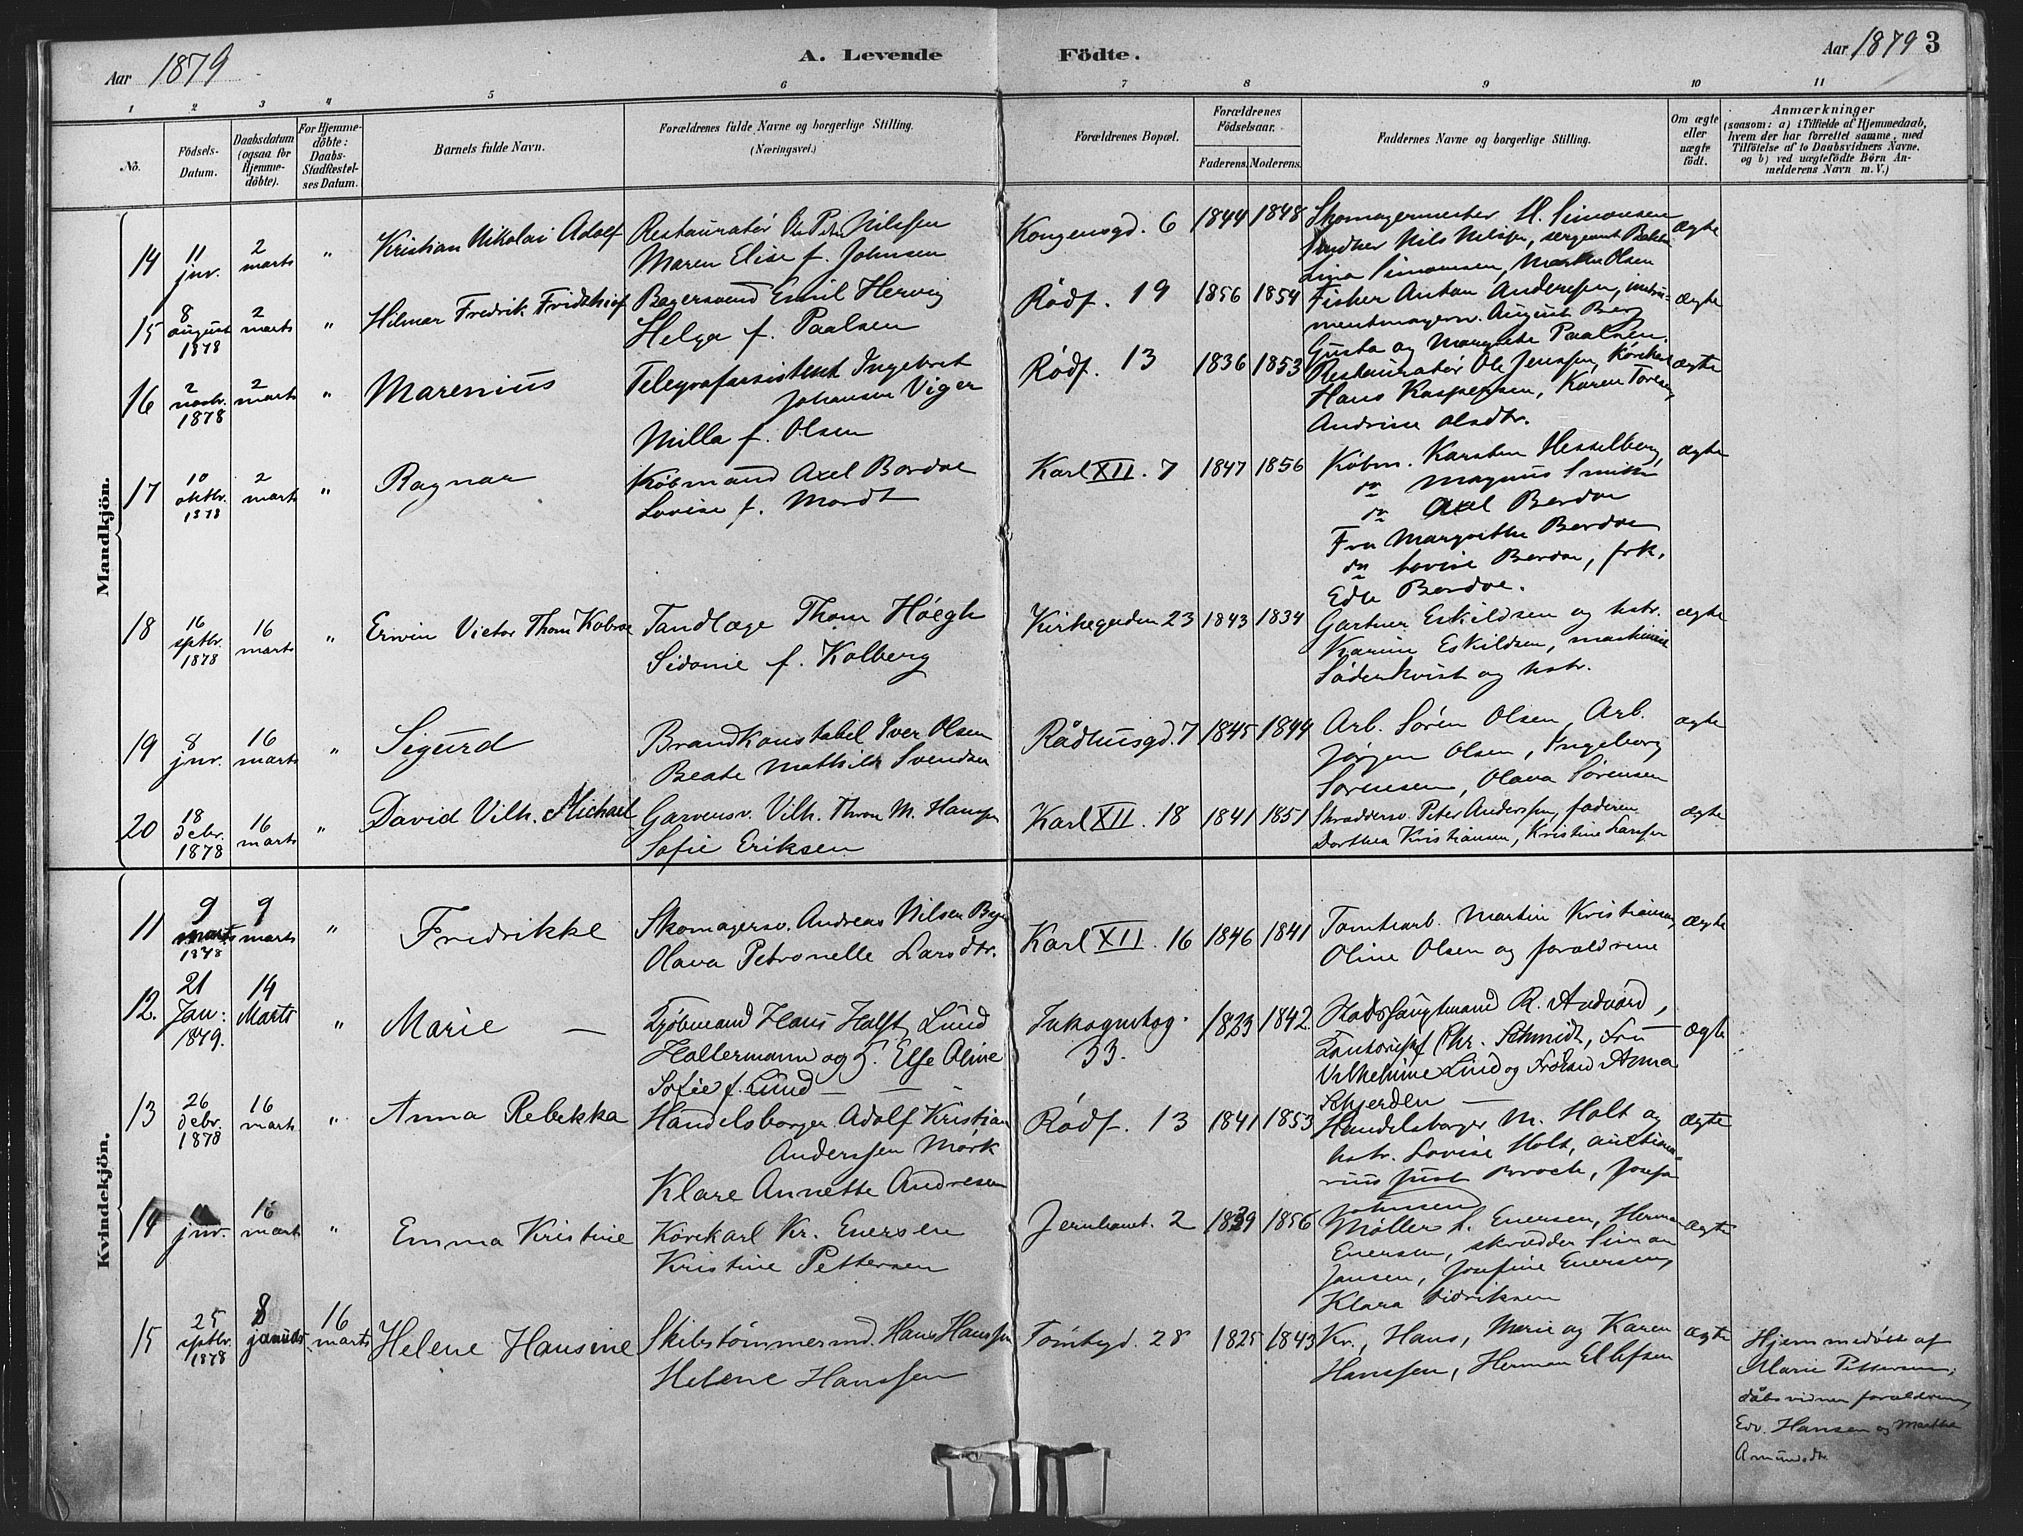 Aar 1879
A. Levende
Födte.
Aar 1879 3
1 2 3 4 5 6 7 8 9 10 11
No.
Födsels-
Datum.
Daabsdatum
(ogsaa for
Hjemme-
döbte).
For Hjemme-
döbte:
Daabs-
Stadfæstel-
ses Datum.
Barnets fulde Navn.
Forældrenes fulde Navne og borgerlige Stilling.
(Næringsvei.)
Forældrenes Bopæl.
Forældrenes
Födselsaar.
Faderens. Moderens.
Faddernes Navne og borgerlige Stilling.
Om ægte
eller
uægte
födt.
Anmærkninger
(saasom: a) i Tilfælde af Hjemmedaab,
hvem der har forrettet samme, med
Tilföielse af to Daabsvidners Navne.
og b) ved uægtefödte Börn An-
melderens Navn m. V.)
Mandkjön.
14
11
jnv.
2
marts
"
Kristian Nikolai Adolf
Restauratör Ole Peter Nilssen
Maren Elise f. Johnsen
Kongensgd. 6
1844 1848
Skomagermester H. Simonsen
Nils Nilssen, sergeant
Lina Simonsen, Olsen
ægte
15
8
august
1878
2
marts
"
Hilmar Fredrik Fridthiof
Bagersvend Emil Hervig
Helga f. Paalsen
Rödf. 19
1856 1854
Fisker Anton Anderssen, instru-
mentmagersv. August Berg
Gusta og Margrete Paalsen
ægte
16
2
novbr.
1878
2
marts
"
Marenius
Telegrafassistent Ingebret
Johansen Viger
Milla f. Olsen
Rödf. 13
1836 1853
Restauratör Ole Jenssen, Körekarl
Hans Kasperssen, Karen Toresen,
Andrine Olsdtr.
ægte
17
10
oktbr.
1878
2
marts
"
Ragnar
Köbmand Axel Bordoe
Lovise f. Mordt
Karl XII. 7
1847 1856
Købm. Karsten Hesselberg,
do Magnus Smith
do Axel Bordoe
Fru Margrethe Bordoe
do Lovise Bordoe, frk.
Edle Bordoe.
ægte
18
16
sptbr.
1878
16
marts
"
Erwin Victor Thom Kobroe
Tandlæge Thom Höegh
Sidonie f. Kolberg
Kirkegaden 23
1843 1834
Gartner Eskildsen og hstr.
Karine Eskildsen, maskinist
Söderkvist og hstr.
ægte
19
8
jnv.
16
marts
"
Sigurd
Brandkonstabel Iver Olsen
Beate Mathilde Svendsen
Rådhusgd. 7
1845 1844
Arb. Sörén Olsen, Arb.
Jörgen Olsen, Ingeborg
Sörensen, Olava Sörensen
ægte
20
18
debr.
1878
16
marts
"
David Vilh. Michael
Garversv. Vilh. Thron M. Hanssen
Sofie Eriksen
Karl XII. 18
1841 1851
Skræddersv. Peter Anderssen, faderen
Dorthea Kristiansen, Kristine Larssen
ægte
Kvindekjön.
11
9
marts
1878
9
marts
"
Fredrikke
Skomagersv. Andreas Nilsen
Olava Petronelle Larsdtr.
Karl XII. 16
1846 1841
Tomtearb. Martin Kristiansen,
Oline Olsen og forældrene
ægte
12.
21
Jan:
1879.
14
Marts
"
Marie —
Kjöbmand Hans Holst Lund
Hallermann og H. Else Oline
Sofie f. Lund —
Inkognitog.
33.
1833 1842.
R. Andvord,
Kontorchef Chr. Schmidt, Fru
Vilhelmine Lund og Fröken Anna
Schjerden —
ægte
13
26
debr.
1878
16
marts
"
Anna Rebekka
Handelsborger Adolf Kristian
Anderssen Mörk
Klare Annette Andresen
Rödf. 13
1841 1853
Handelsborger M. Holt og
hstr. Lovise Holt, auktiona-
rius Just Broch, Josefa
Johnsen
ægte
14
jnv.
16
marts
"
Emma Kristine
Körekarl Kr. Enersen
Kristine Pettersen
Jernbanet. 2
1839 1856
Möller L. Enersen, Herman
Enersen, skrædder Simon
Jansen, Josefine Enersen,
Klara Didriksen
ægte
15
25
sptbr.
1878
8
januar
16
marts
Helene Hansine
Skibstömmermd. Hans Hanssen
Helene Hanssen
Tomtegd. 28
1825 1843
Kr., Hans, Marie og Karen
Hanssen, Herman Ellefsen
ægte
Hjemmedöbt af
Marie Pettersen;
dåbsvidner forældrene,
Edv. Hansen og Martha
Amundsdtr.